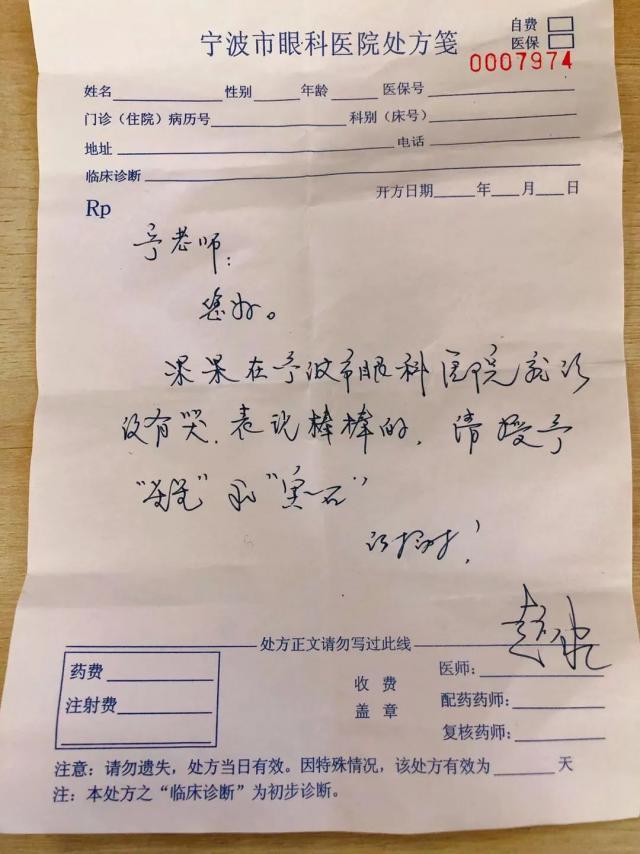 宁波市眼科医院处方笺
自费
医保
0007974
姓名 性别 年龄 医保号
门诊（住院）病历号 科别（床号）
地址 电话
临床诊断
开方日期 年 月 日
Rp
于老师：
您好。
果果在宁波市眼科医院就诊
没有哭，表现棒棒的，请授予
和“宝石”
处方正文请勿写过此线
药费
注射费
收费
盖章
医师：
配药药师：
复核药师：
注意：请勿遗失，处方当日有效。因特殊情况，该处方有效为 天
注：本处方之“临床诊断”为初步诊断。